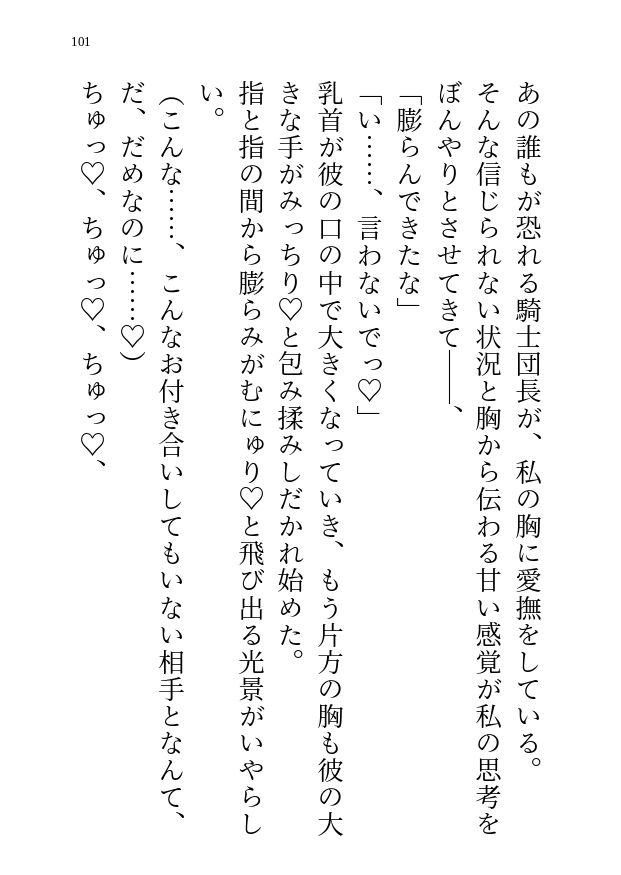 101
あの誰もが恐れる騎士団長が、私の胸に愛撫をしている。
そんな信じられない状況と胸から伝わる甘い感覚が私の思考を
ぼんやりとさせてきて――、
「膨らんできたな」
「い……、言わないでっ♡」
乳首が彼の口の中で大きくなっていき、もう片方の胸も彼の大
きな手がみっちり♡と包み揉みしだかれ始めた。
指と指の間から膨らみがむにゅり♡と飛び出る光景がいやらし
い。
（こんな……、こんなお付き合いしてもいない相手となんて、
だ、だめなのに……♡）
ちゅっ♡、ちゅっ♡、ちゅっ♡、